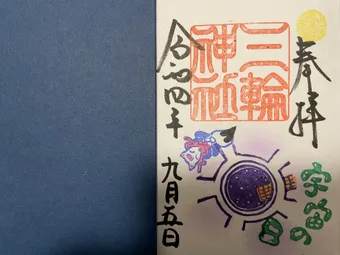 奉拝
宇宙の
日
三輪
神社
令和四年
九月五日